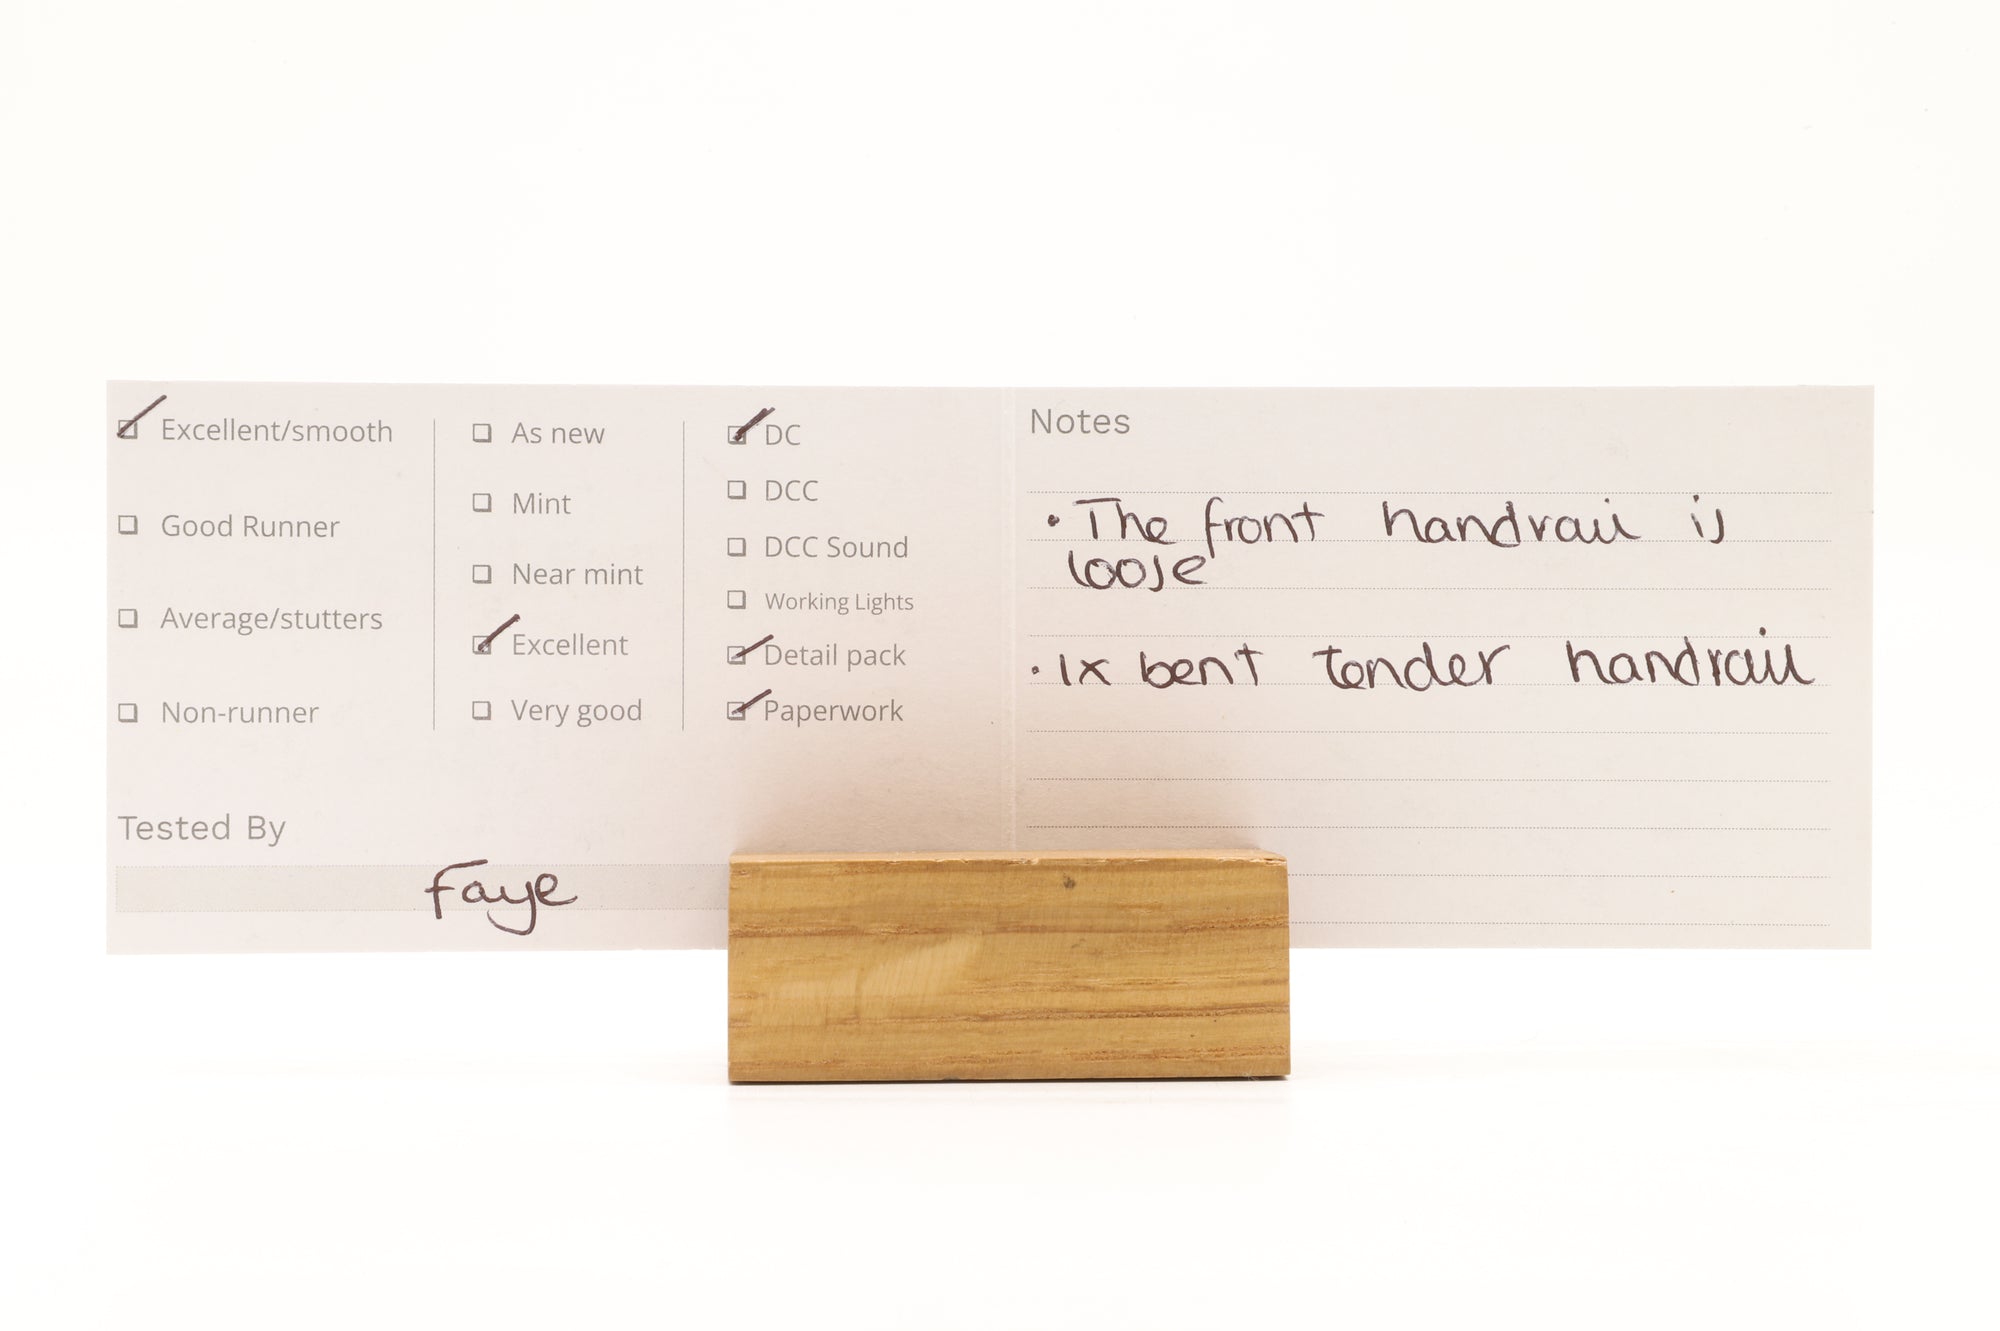 Excellent/smooth
Good Runner
Average/stutters
Non-runner
As new
Mint
Near mint
Excellent
Very good
DC
DCC
DCC Sound
Working Lights
Detail pack
Paperwork
Tested By
Faye
Notes
• The front handrail is
loose
• 1x bent tender handrail